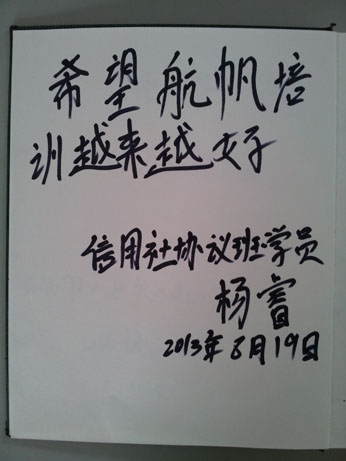 希望航帆培
训越来越好
信用社协议班学员
杨睿
2013年8月19日